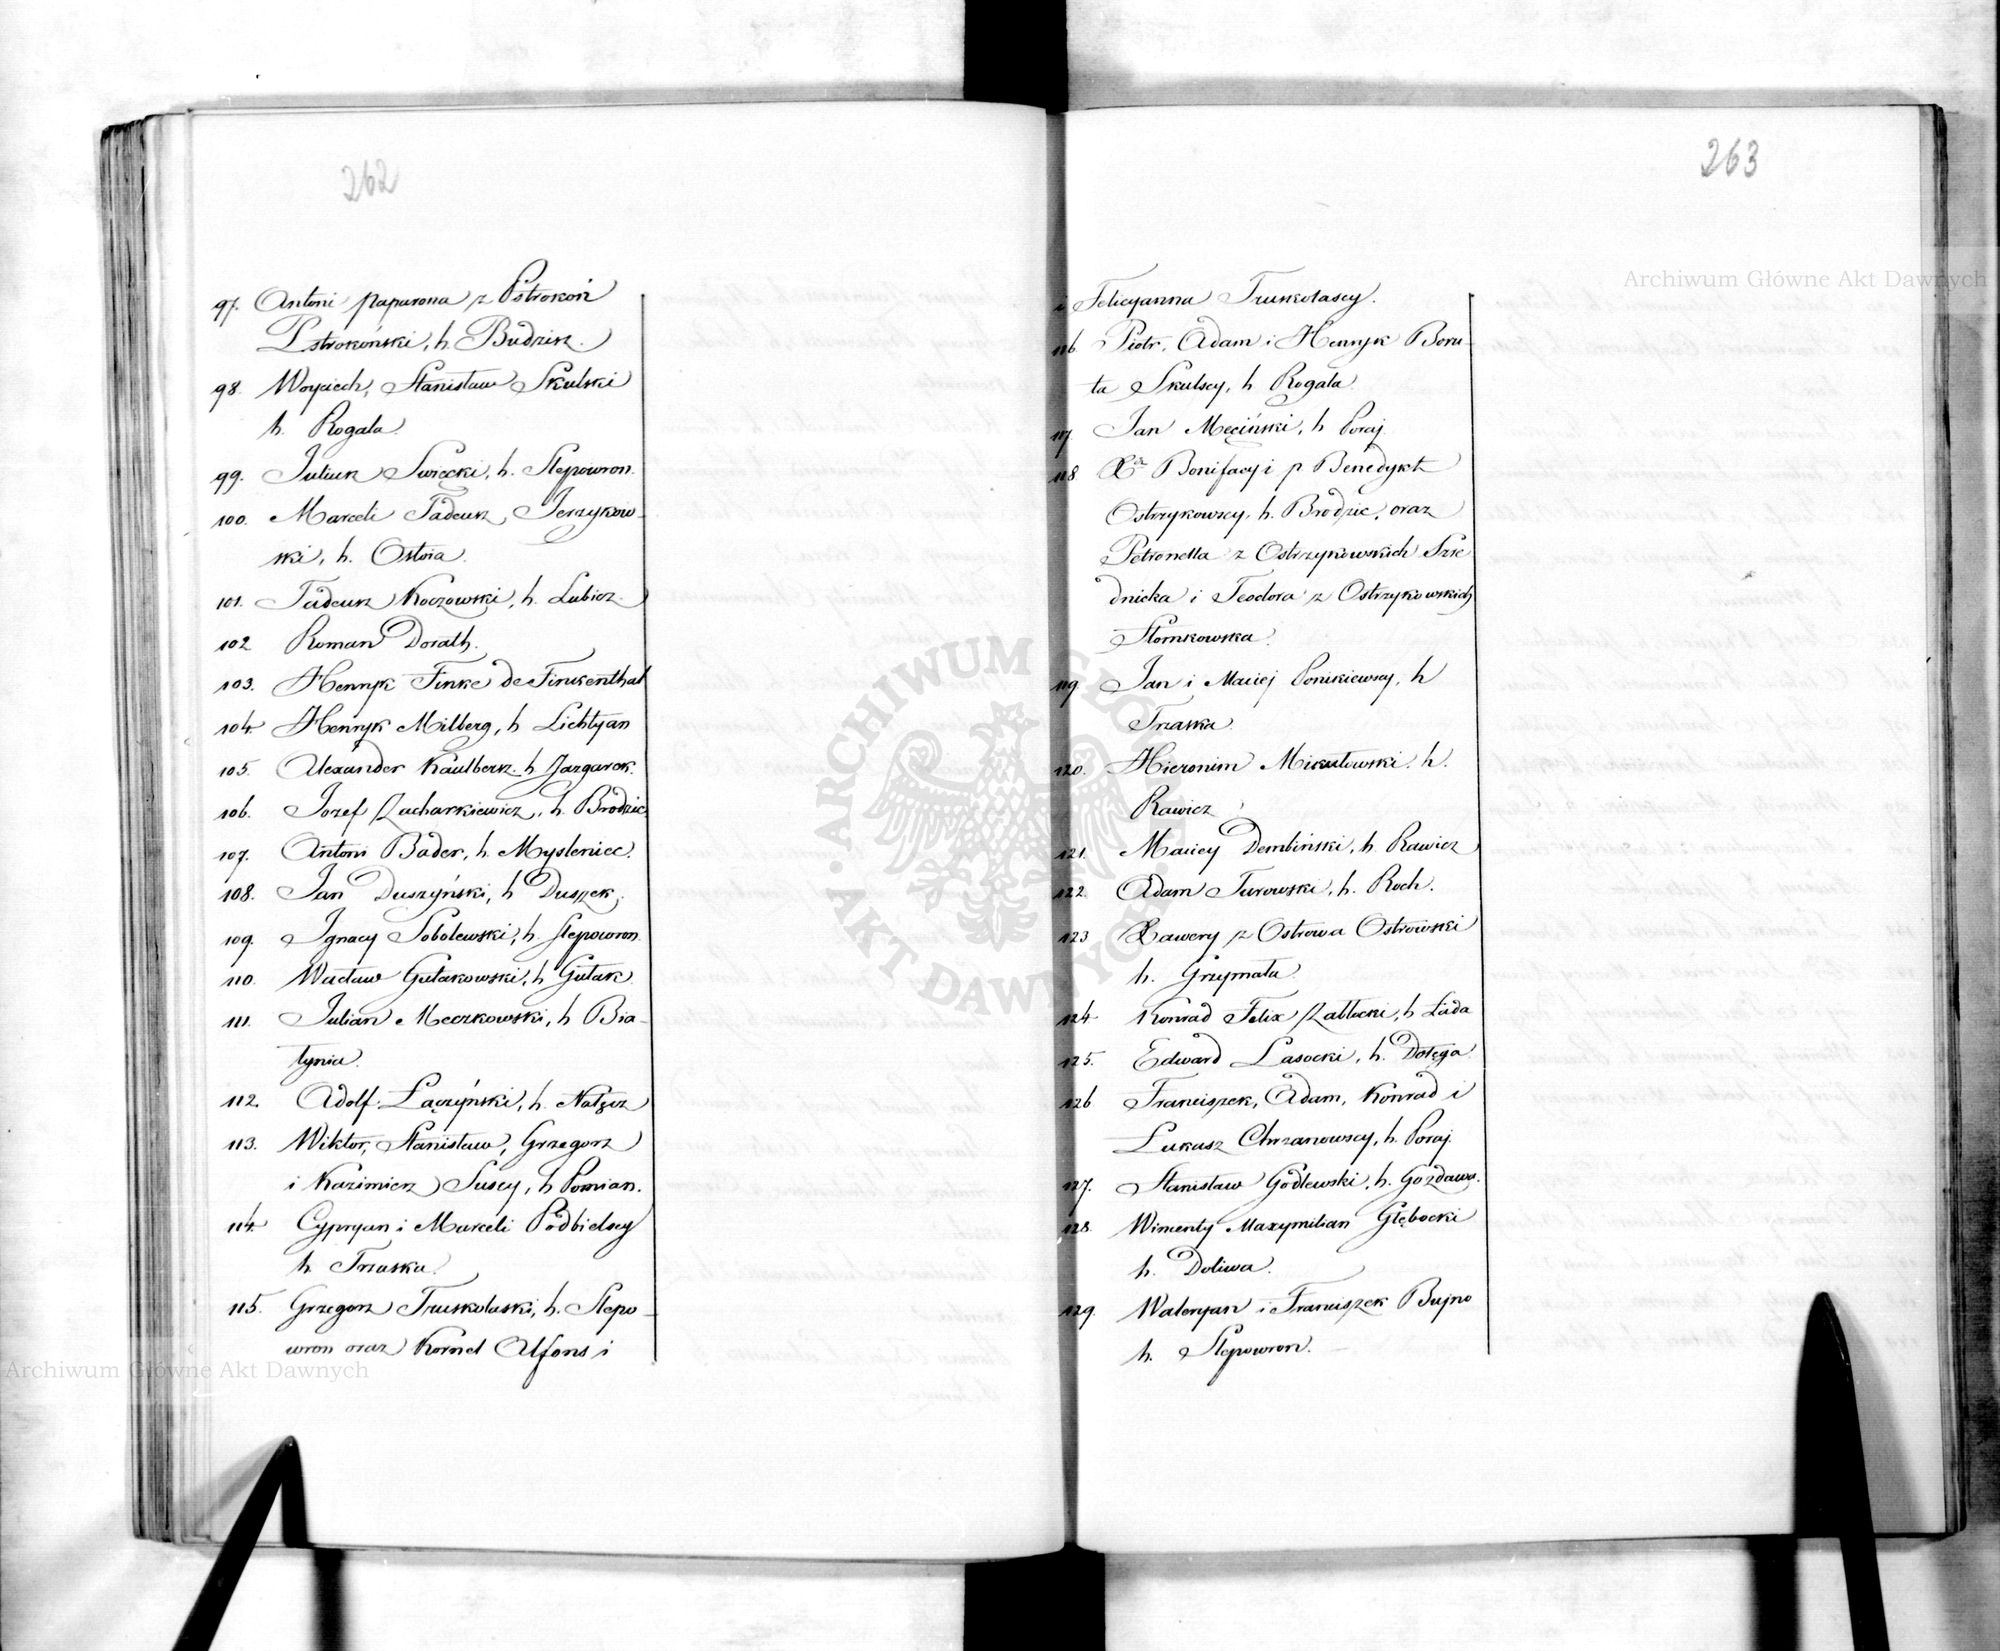 262
97. Antoni Paparona z Pstrokoń
Pstrokoński, h. Budzisz.
98. Woyciech, Stanisław Skulski
h. Rogala.
99. Juliusz Święcki, h. Slepowron.
100. Marceli Tadeusz Jerzykow-
ski, h. Ostoia.
101. Tadeusz Koczowski, h. Lubicz.
102 Roman Dorath.
103. Henryk Finke de Finkenthal
104. Henryk Milberg, h. Lichtyan
105. Alexander Kaulbersz. h. Jazgarek.
106. Jozef Zacharkiewicz, h. Brodzic.
107. Antoni Bader, h. Mysleniec.
108. Jan Duszyński, h. Duszek.
109. Ignacy Sobolewski, h. Slepowron.
110. Wacław Gutakowski, h. Gutak.
111. Julian Meczkowski, h. Bia-
łynia.
112. Adolf Łączyński, h. Nałęcz
113. Wiktor, Stanisław, Grzegorz
i Kazimierz Suscy, h. Pomian.
114. Cypryan i Marceli Podbielscy
h. Trzaska.
115. Grzegorz Truskolaski, h. Slepo-
wron oraz Kornel Alfons i
263
i Felicyanna Truskolascy.
116. Piotr, Adam i Henryk Boru-
ta Skulscy, h. Rogala.
117. Jan Męciński, h. Poraj.
118. Xdz Bonifacy i p. Benedykt
Ostrzykowscy, h. Brodzic, oraz
Petronella z Ostrzykowskich Szre
dnicka i Teodora z Ostrzykowskich
Słomkowska.
119. Jan i Maciej Ponikiewscy, h
Trzaska.
120. Hieronim Mikułowski. h.
Rawicz
121. Maciey Dembiński, h. Rawicz
122. Adam Turowski, h. Roch.
123 Xawery z Ostrowa Ostrowski
h. Grzymała.
124. Konrad Felix Zabłocki, h. Łada
125. Edward Lasocki, h. Dołęga.
126 Franciszek, Adam, Konrad i
Łukasz Chrzanowscy, h. Poraj.
127. Stanisław Godlewski, h. Gozdawa.
128. Wimenty Maxymilian Głębocki
h. Doliwa.
129. Waleryan i Franciszek Bujno
h. Slepowron.
Archiwum Główne Akt Dawnych
Archiwum Główne Akt Dawnych
ARCHIWUM GŁÓWNE AKT DAWNYCH